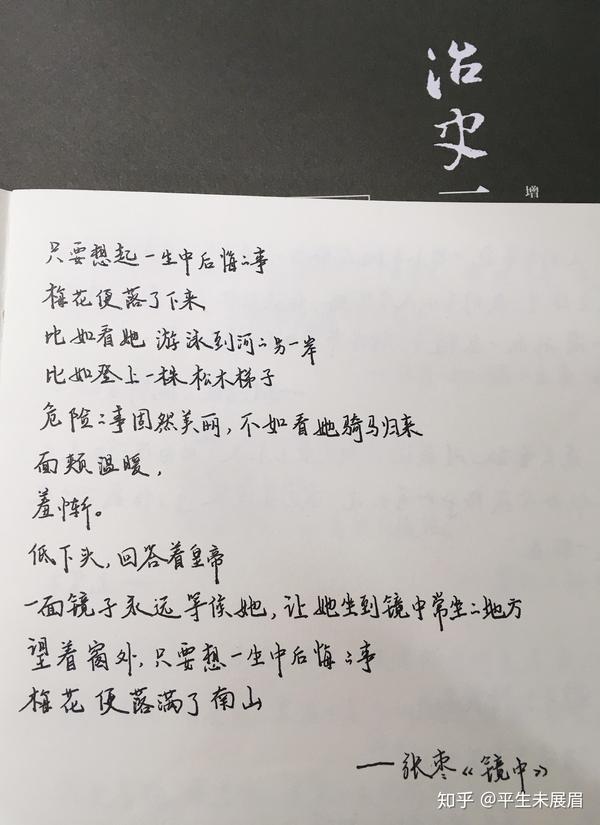 治史
一
增
只要想起一生中后悔之事
梅花便落了下来
比如看她游泳到河之另一岸
比如登上一株松木梯子
危险之事固然美丽,不如看她骑马归来
面颊温暖,
羞惭。
低下头,回答着皇帝
一面镜子永远等候她,让她坐到镜中常坐之地方
望着窗外,只要想一生中后悔之事
梅花便落满了南山
——张枣《镜中》
知乎 @平生未展眉